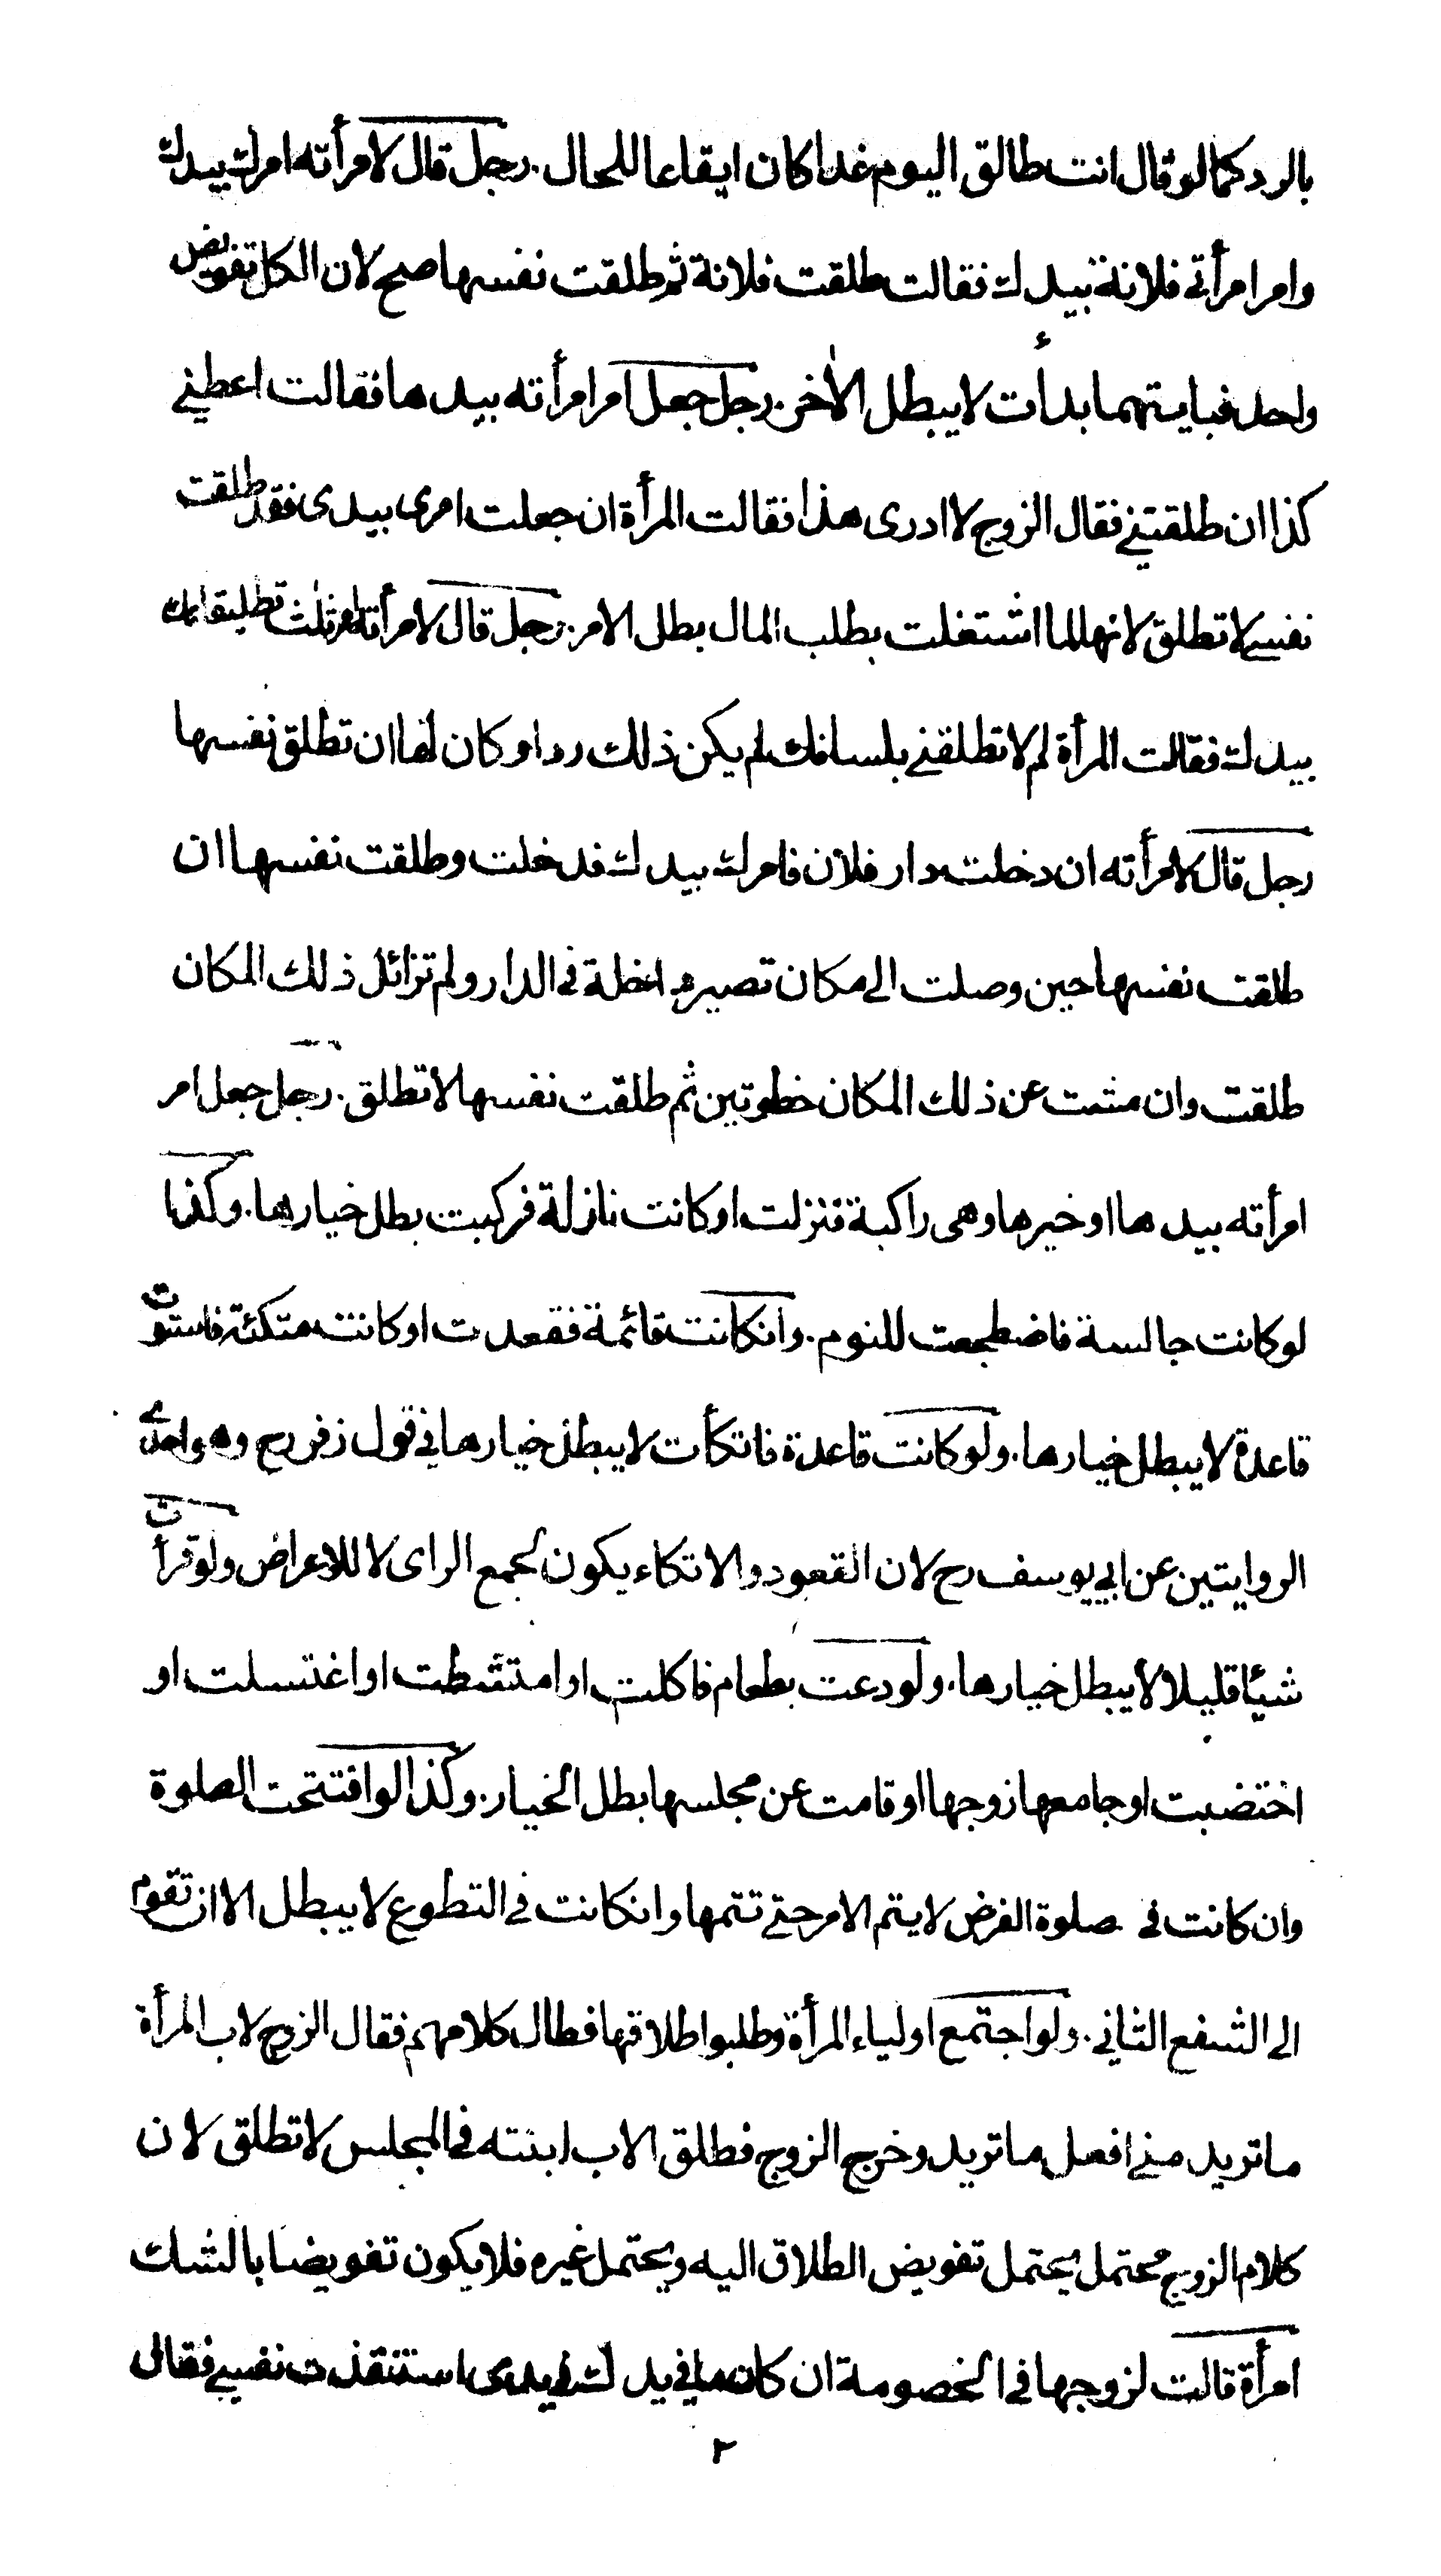 بالرد كما لو قال انت طالق اليوم غدا كان ايقاعا للحال. رجل قال لامرأته امرك بيدك
وامر امرأتي فلانة بيدك فقالت طلقت فلانة ثم طلقت نفسها صح لان الكل تفويض
واحد فبايتهما بدأت لا يبطل الأخر. رجل جعل امر امرأته بيدها فقالت اعطني
كذا ان طلقتني فقال الزوج لا ادرى هذا فقالت المرأة ان جعلت امرى بيدى فقد طلقت
نفسي لا تطلق لانها لما اشتغلت بطلب المال بطل الامر. رجل قال لامرأته امر ثلث تطليقاتك
بيدك فقالت المرأة لم لا تطلقني بلسانك لم يكن ذلك ردا وكان لها ان تطلق نفسها
رجل قال لامرأته ان دخلت دار فلان فامرك بيدك فدخلت وطلقت نفسها ان
طلقت نفسها حين وصلت الى مكان تصير داخلة في الدار ولم تزائل ذلك المكان
طلقت وان مشت عن ذلك المكان خطوتين ثم طلقت نفسها لا تطلق. رجل جعل امر
امرأته بيدها او خيرها وهى راكبة فنزلت او كانت نازلة فركبت بطل خيارها. وكذا
لو كانت جالسة فاضطجعت للنوم. وانكانت قائمة فقعدت او كانت متكئة فاستوت
قاعدة لا يبطل خيارها. ولو كانت قاعدة فاتكأت لا يبطل خيارها في قول زفر رح وهو احدى
الروايتين عن ابي يوسف رح لان القعود والاتكاء يكون لجمع الراى لا للاعراض ولو قرأت
شيئا قليلا لا يبطل خيارها. ولو دعت بطعام فاكلت او امتشطت او اغتسلت او
اختضبت او جامعها زوجها او قامت عن مجلسها بطل الخيار. وكذا لو افتتحت الصلوة
وان كانت في صلوة الفرض لا يتم الامر حتى تتمها وانكانت في التطوع لا يبطل الا ان تقوم
الى الشفع الثاني. ولو اجتمع اولياء المرأة وطلبوا طلاقها فطال كلامهم فقال الزوج لاب المرأة
ما تريد مني افعل ما تريد وخرج الزوج فطلق الاب ابنته في المجلس لا تطلق لان
كلام الزوج محتمل يحتمل تفويض الطلاق اليه ويحتمل غيره فلا يكون تفويضا بالشك
امرأة قالت لزوجها في الخصومة ان كان ما في يدك في يدى استنقذت نفسي فقال
٢